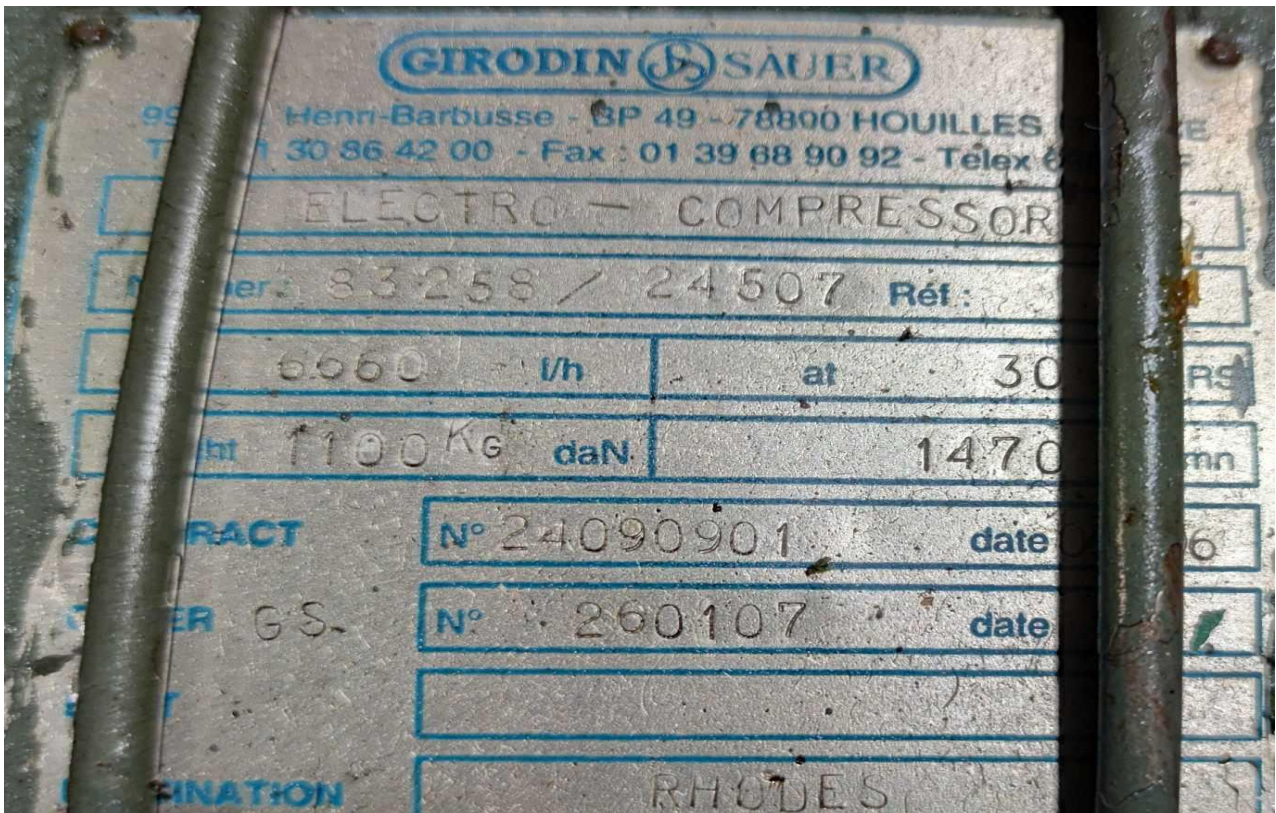 GIRODIN SAUER
99 Henri-Barbusse - BP 49 - 78800 HOUILLES
30 86 42 00 - Fax : 01 39 68 90 92 - Télex
ELECTRO - COMPRESSOR
83258 / 24507 Réf :
6660 l/h at 30
1100 KG daN 1470 mn
N° 24090901 date
G S. N° 260107 date
RHODES